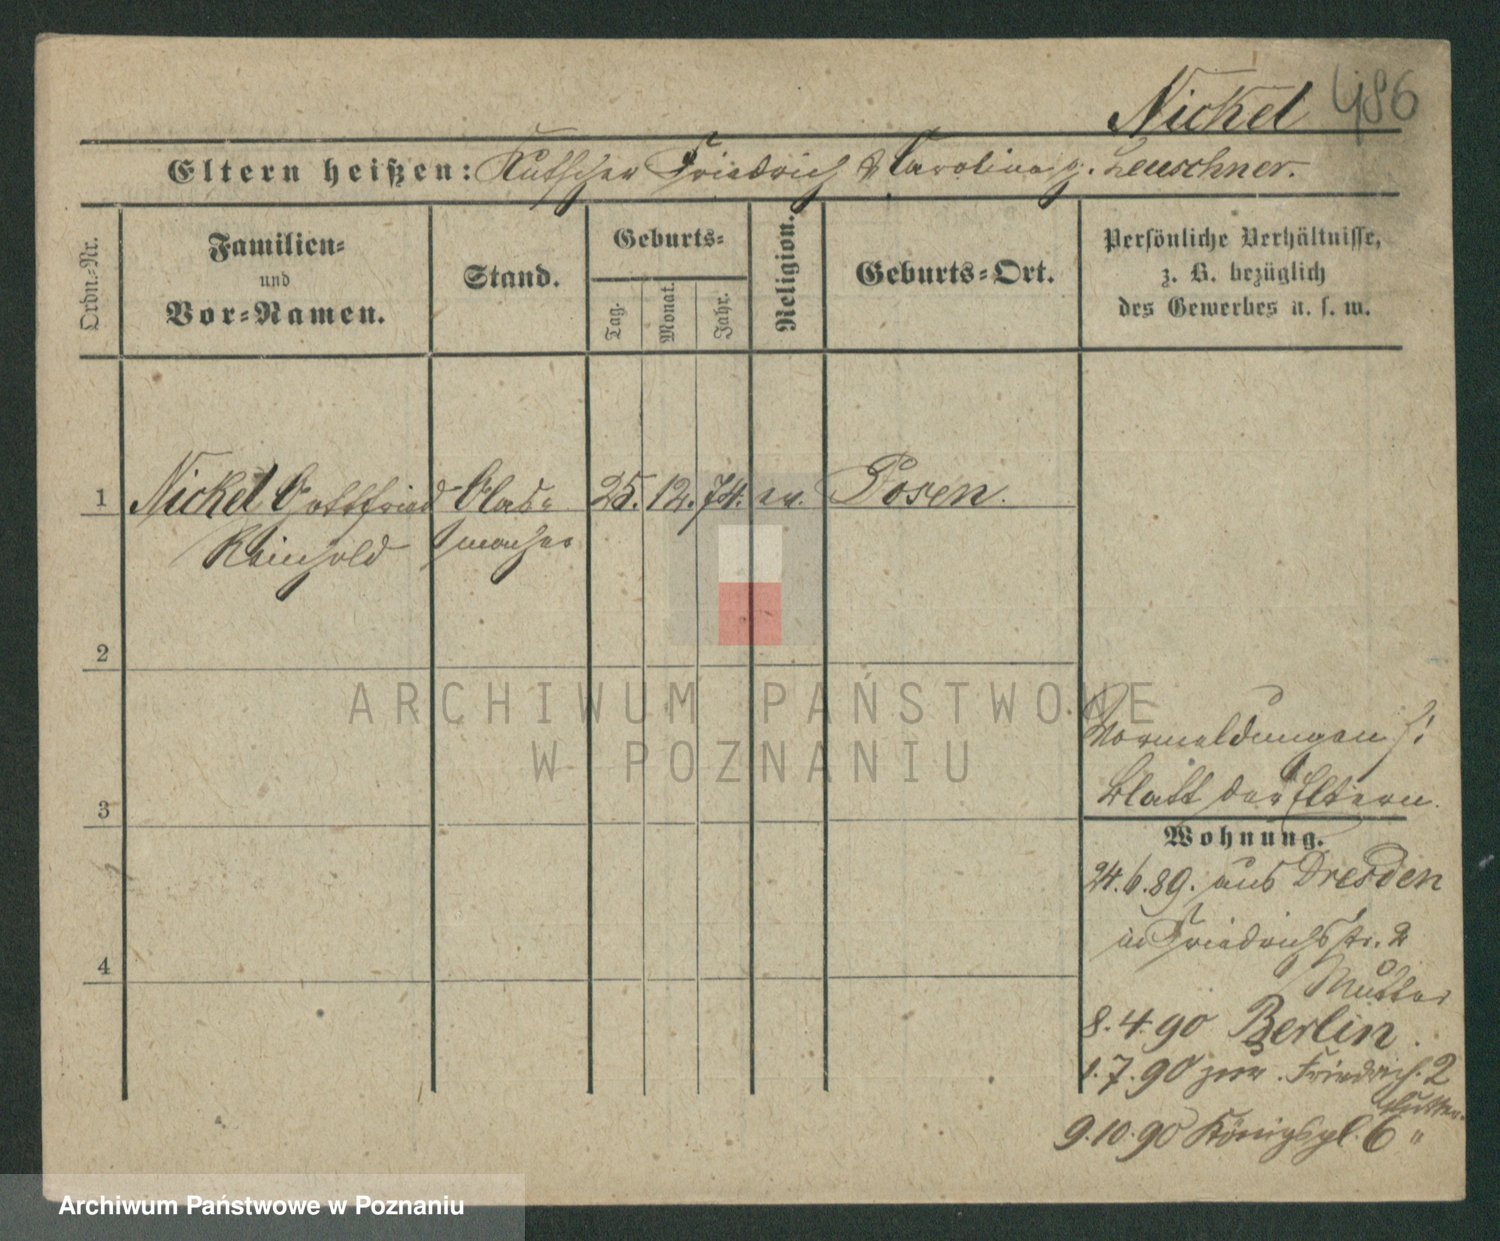 Nickel 486
Eltern heißen: Kutscher Friedrich & Carolina g. Leuschner.
Ordn.-Nr.
Familien-
und
Vor-Namen.
Stand.
Geburts-
Tag.
Monat.
Jahr.
Religion.
Geburts-Ort.
Persönliche Verhältnisse,
z. B. bezüglich
des Gewerbes u. s. w.
1 Nickel Gottfried Glas= 25. 12. 74. ev. Posen.
Reinhold macher
2
ARCHIWUM PAŃSTWOWE
W POZNANIU
Vormeldungen s:
Blatt der Eltern.
3
Wohnung.
24.6.89. aus Dresden
in Friedrichstr. 2
4
Mutter
8.4.90 Berlin.
1.7.90 zur. Friedrich. 2
Mutter
9.10.90 Königspl. 6 "
Archiwum Państwowe w Poznaniu